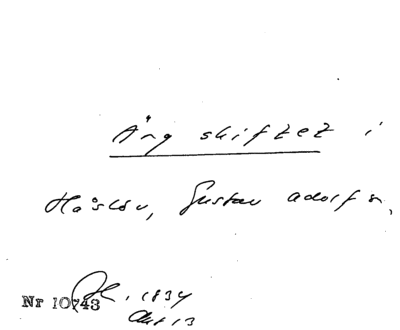 Äng skiftet i
Håslöv, Gustav Adolf s.
Nr 10743 , 1834
Akt 13